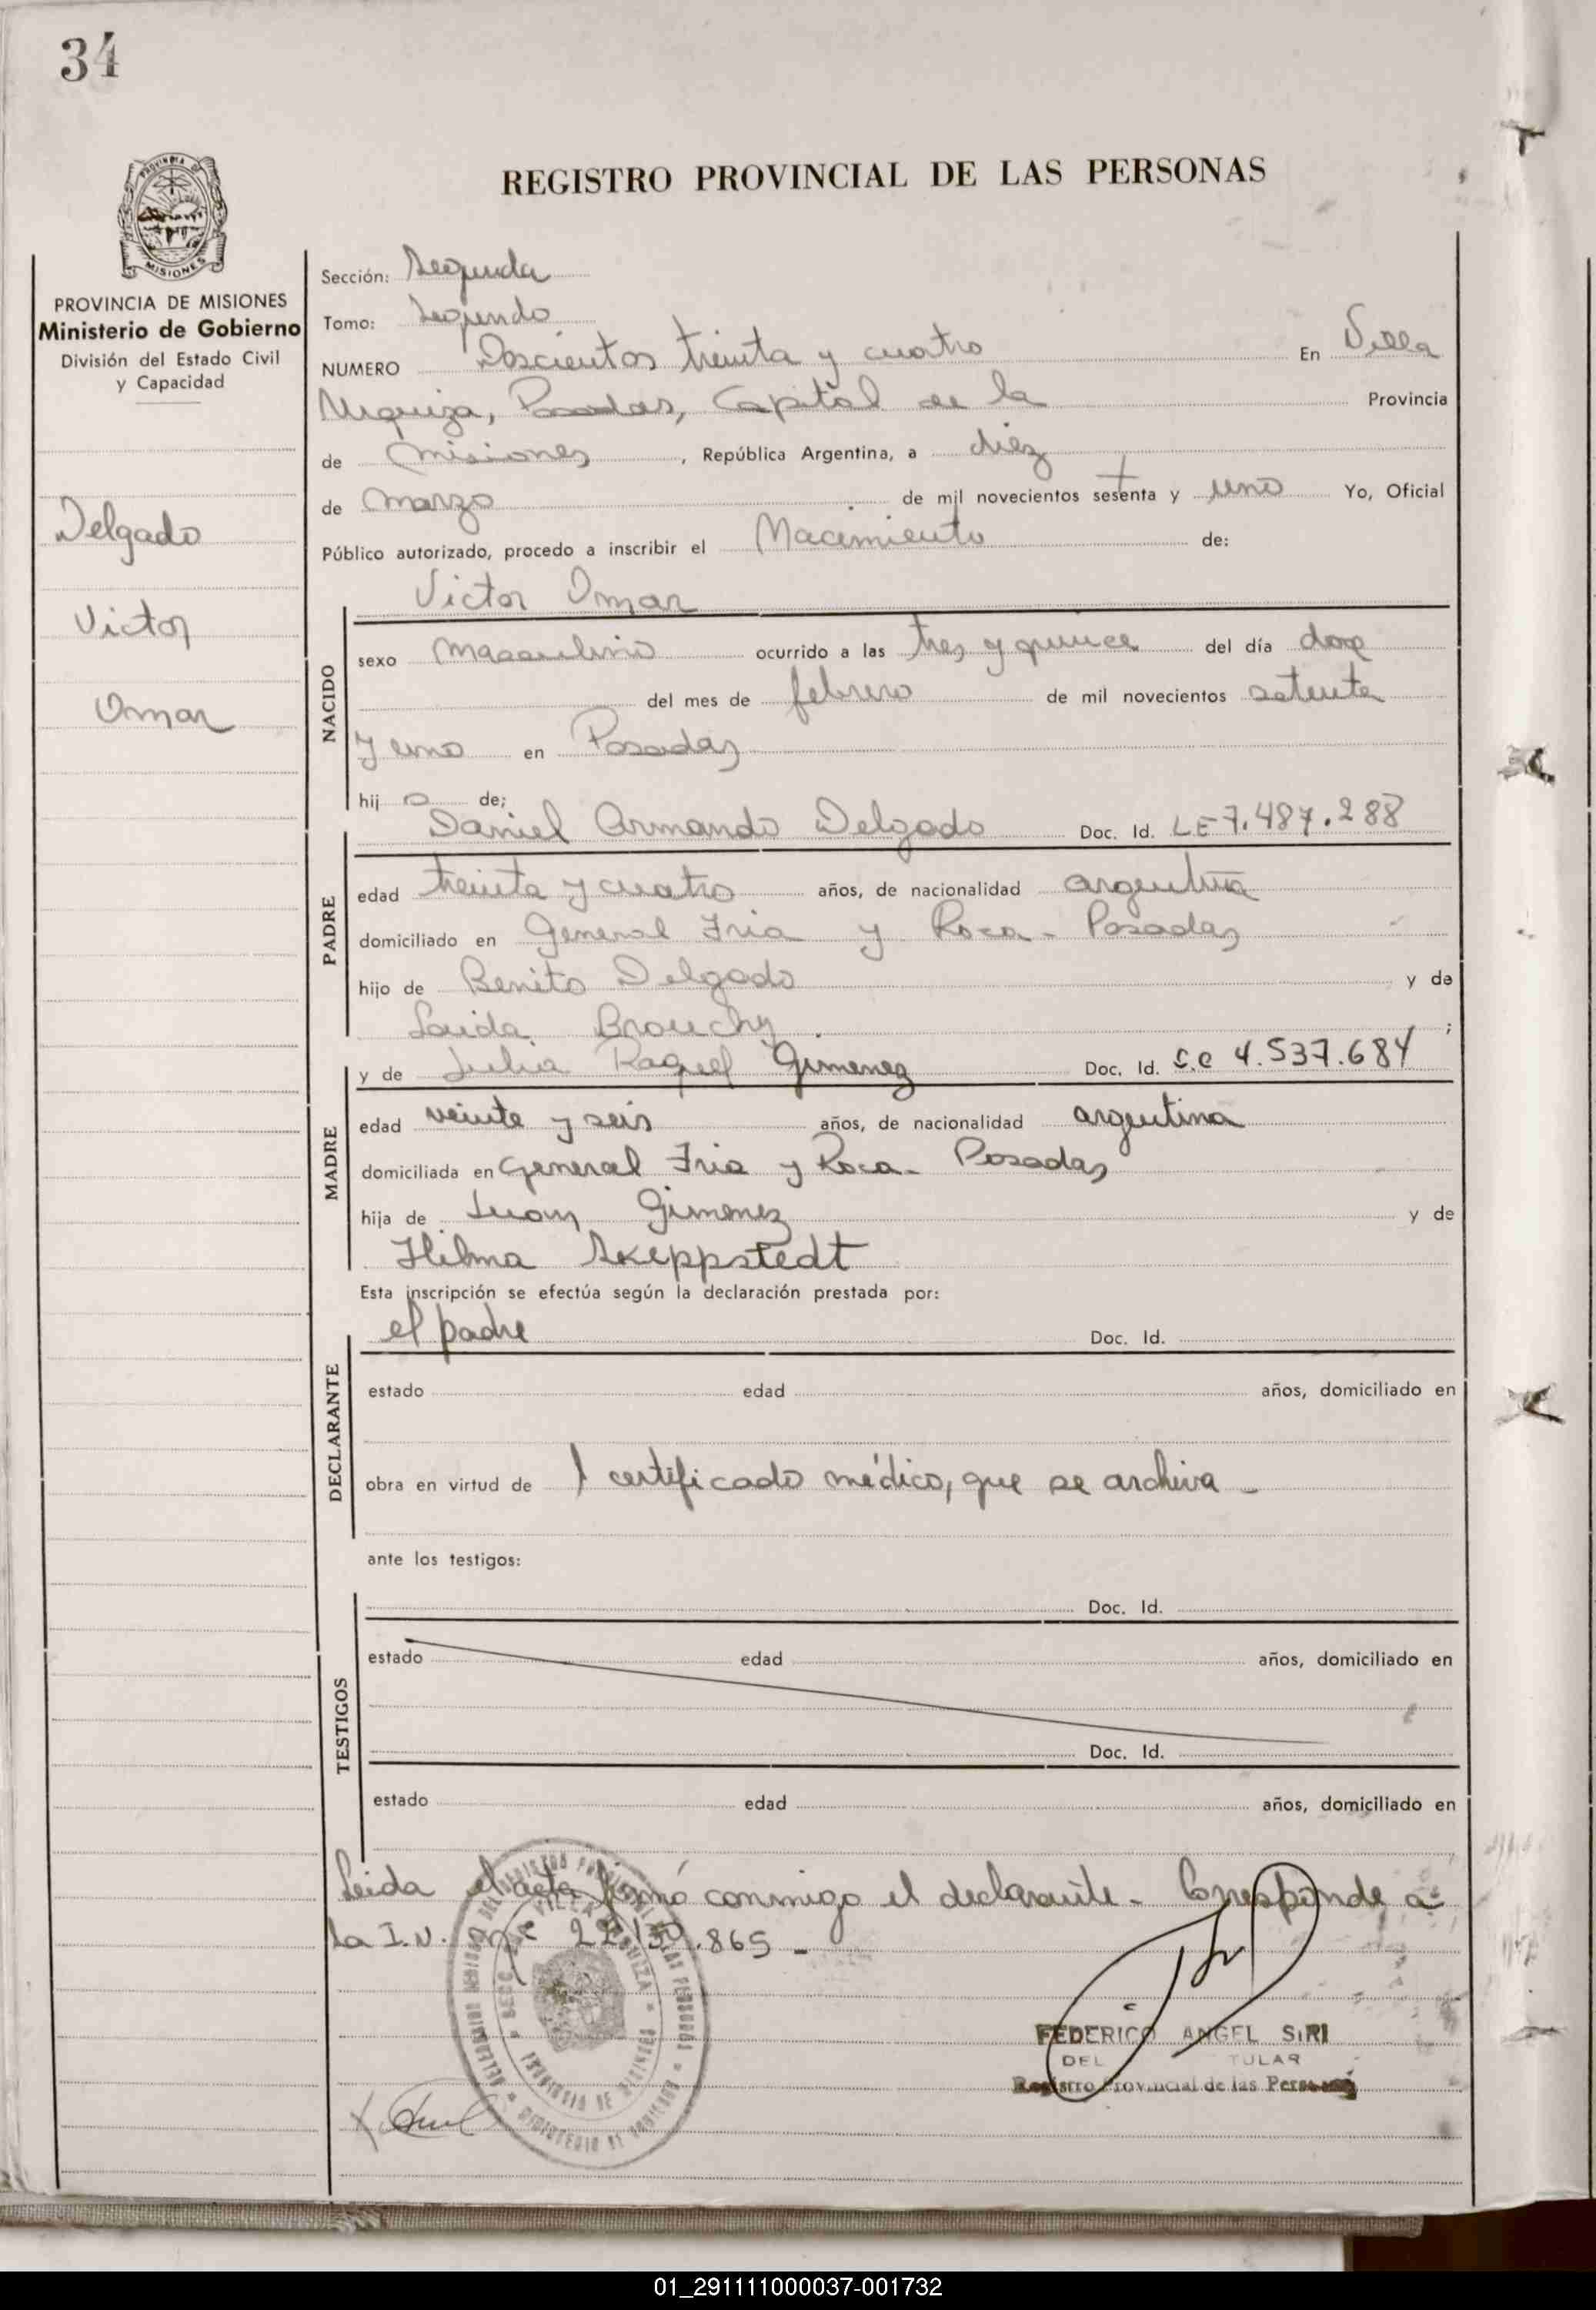 34
PROVINCIA DE
MISIONES
REGISTRO PROVINCIAL DE LAS PERSONAS
PROVINCIA DE MISIONES
Ministerio de Gobierno
División del Estado Civil
y Capacidad
Delgado
Victor
Omar
Sección: Segunda
Tomo: Segundo
NUMERO Doscientos treinta y cuatro En Villa
Urquiza, Posadas, Capital de la Provincia
de Misiones, República Argentina, a diez
de marzo de mil novecientos setenta y uno Yo, Oficial
Público autorizado, procedo a inscribir el Nacimiento de:
Victor Omar
NACIDO
sexo masculino ocurrido a las tres y quince del día doce
del mes de febrero de mil novecientos setenta
y uno en Posadas
hij o de;
Daniel Armando Delgado Doc. Id. LE 7.487.288
PADRE
edad treinta y cuatro años, de nacionalidad argentina
domiciliado en General Fria y Roca - Posadas
hijo de Benito Delgado y de
Brouchy ;
y de Julia Raquel Gimenez Doc. Id. L.C 4.537.684
MADRE
edad veinte y seis años, de nacionalidad argentina
domiciliada en General Fria y Roca - Posadas
hija de Juan Gimenez y de
Hilma Skeppstedt
Esta inscripción se efectúa según la declaración prestada por:
el padre Doc. Id.
DECLARANTE
estado edad años, domiciliado en
obra en virtud de 1 certificado médico, que se archiva -
ante los testigos:
Doc. Id.
TESTIGOS
estado edad años, domiciliado en
Doc. Id.
estado edad años, domiciliado en
Leida el acta firmó conmigo el declarante - Corresponde a
la I.N. .865 -
FEDERICO ANGEL SIRI
DEL TULAR
Registro Provincial de las Personas
01_291111000037-001732